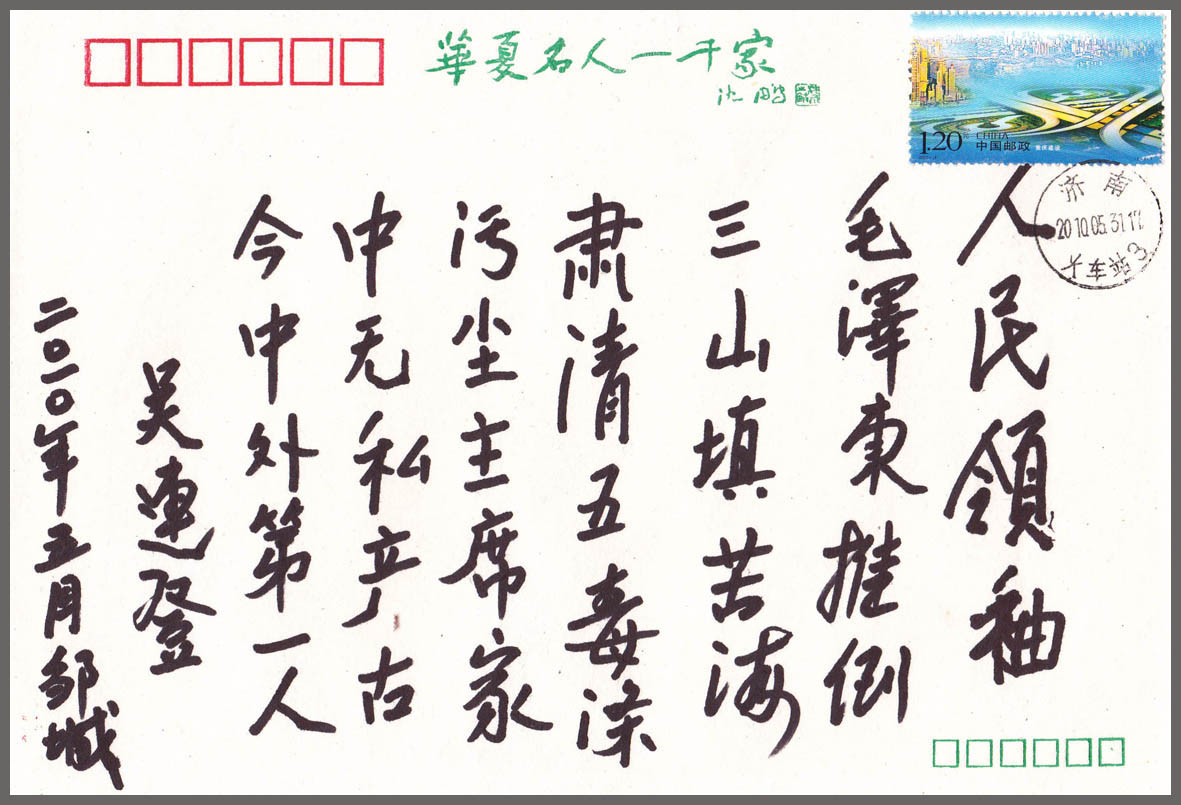 華夏名人一千家
沈鹏
1.20元
CHINA
中国邮政
重庆建设
济南
2010.05.31.17
火车站3
人民領袖
毛澤東推倒
三山填苦海
肃清五毒涤
污尘主席家
中无私产古
今中外第一人
吴連登
二〇一〇年五月邹城